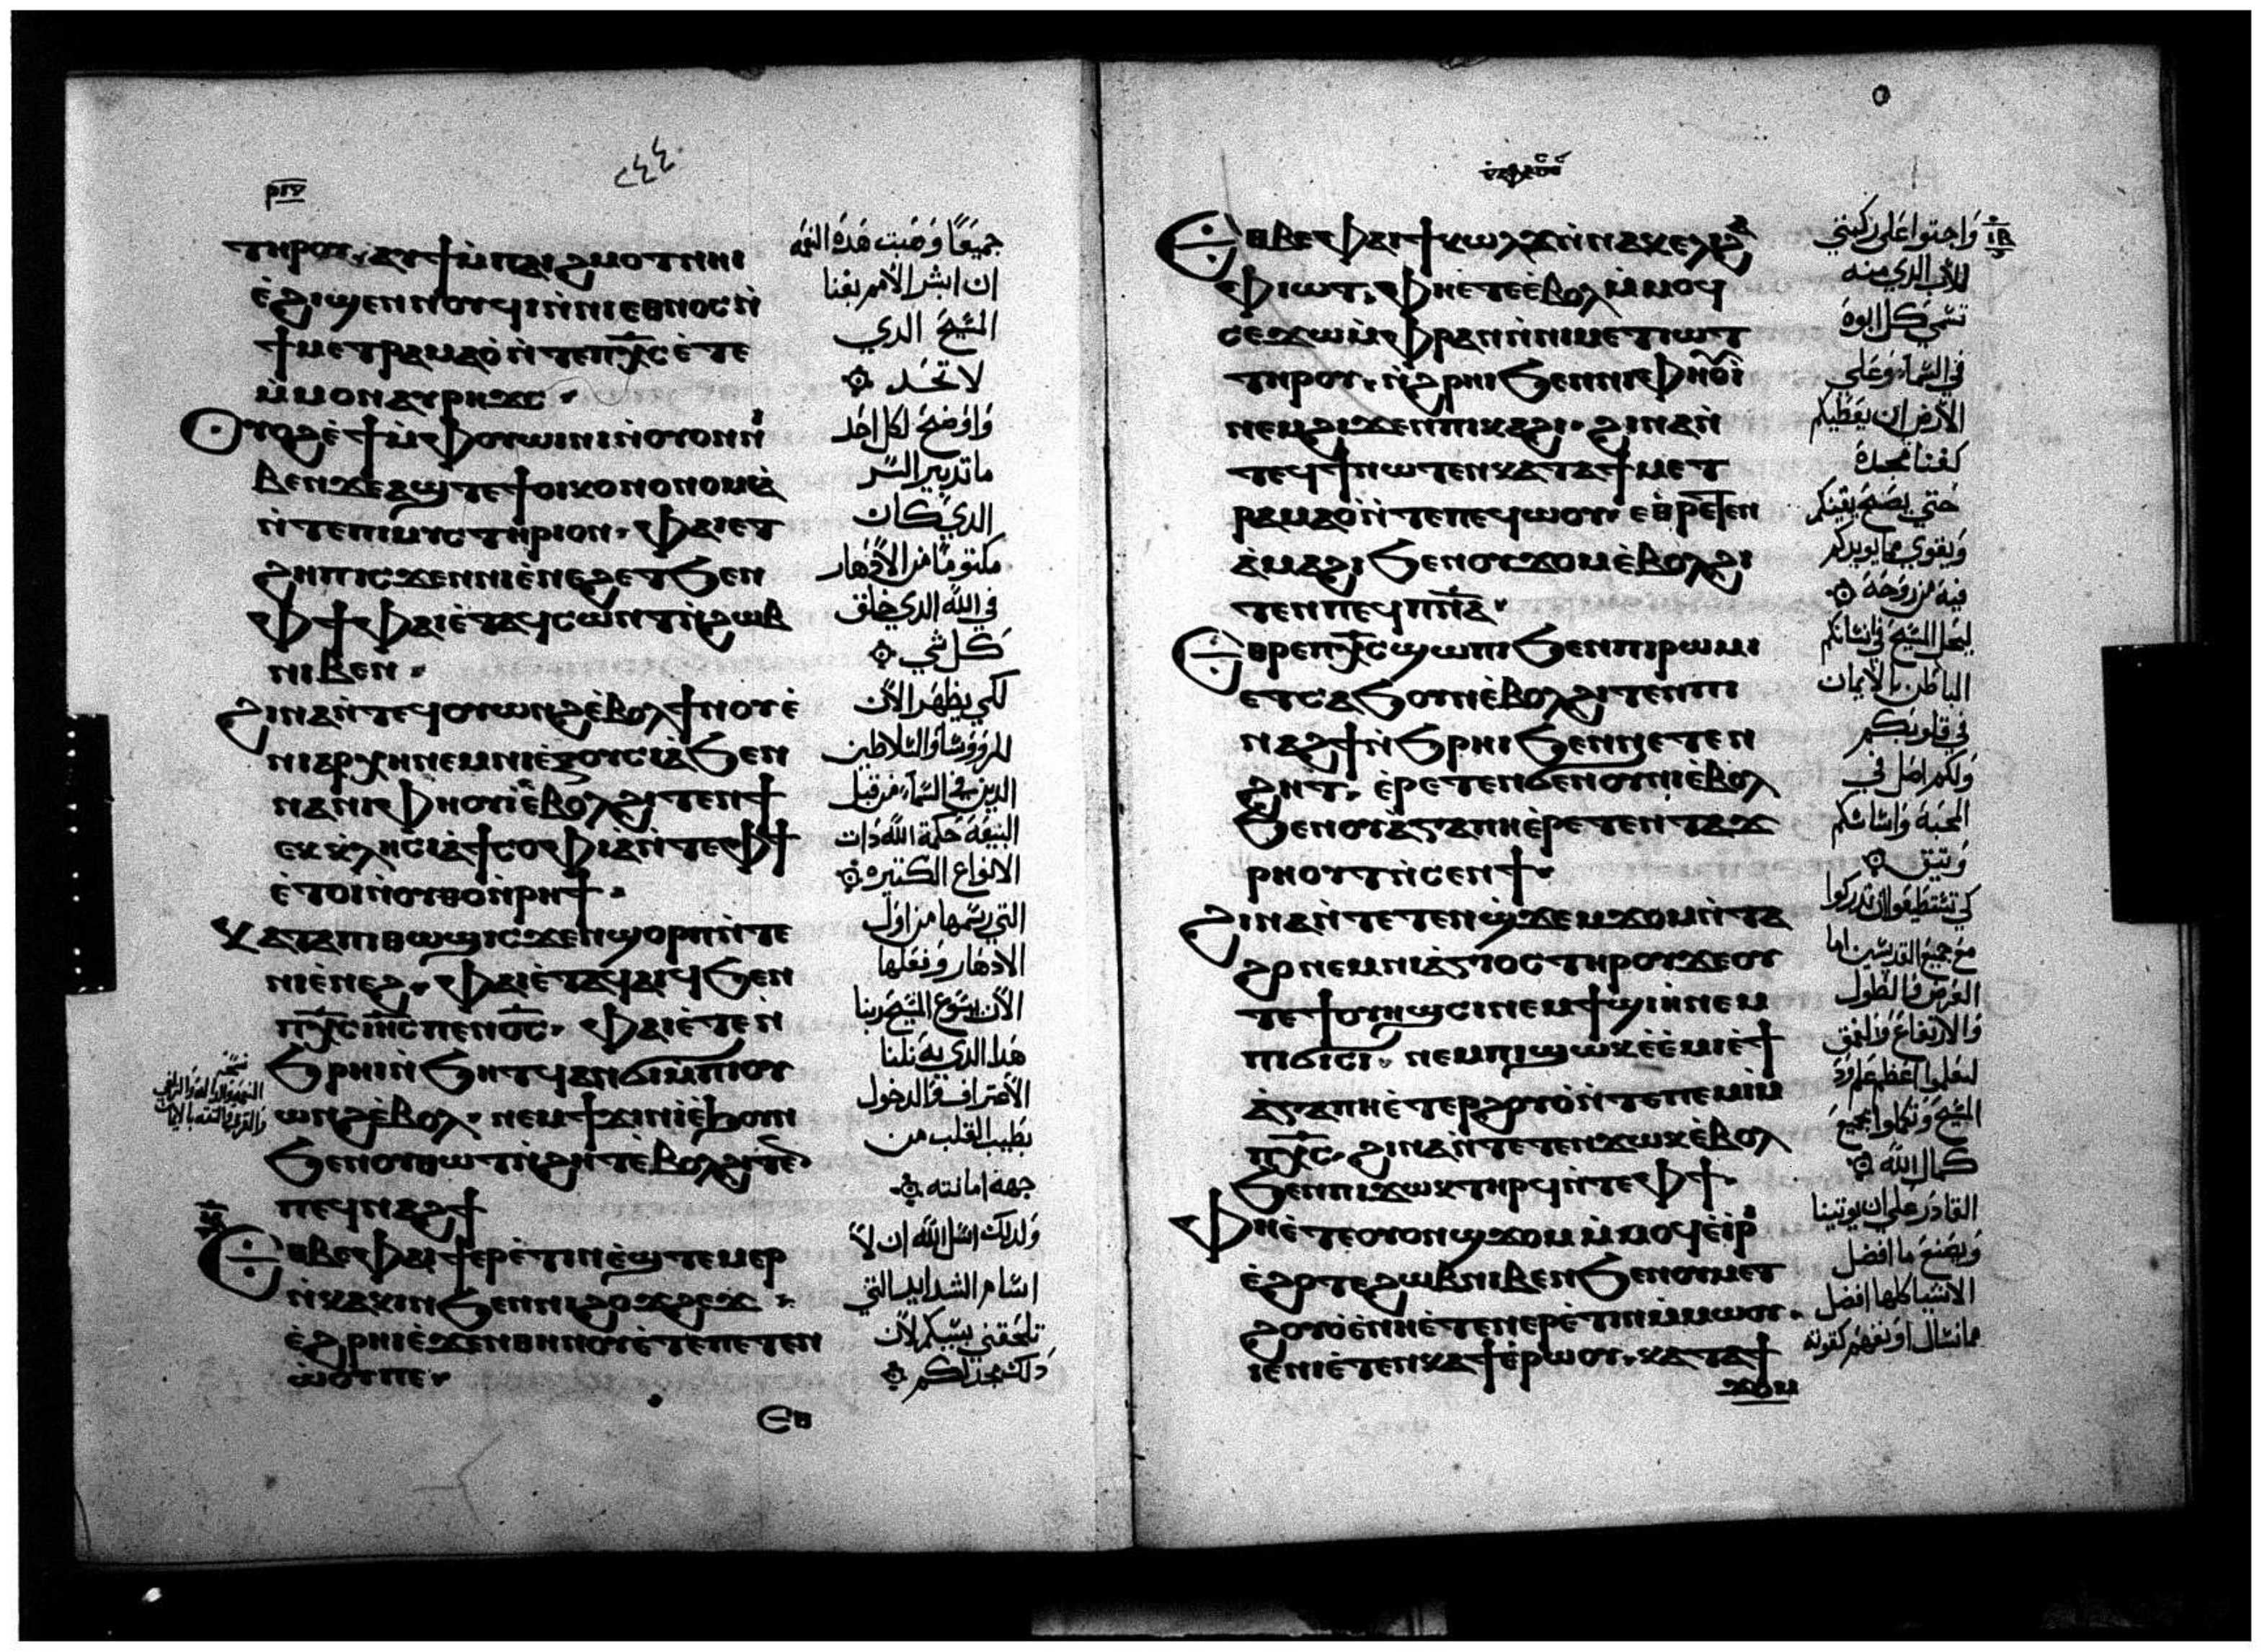 ⲣⲓⲍ
٢٤٤
ⲧⲏⲣⲟⲩ ⲁⲩϯ ⲙ̀ⲡⲁⲓϩⲙⲟⲧ ⲛⲏⲓ
ⲉ̀ϩⲓϣⲉⲛⲛⲟⲩϥⲓ ⲛ̀ⲛⲓⲉⲑⲛⲟⲥ ⲛ̀
ϯⲙⲉⲧⲣⲁⲙⲁⲟ̀ ⲛ̀ⲧⲉ ⲡⲭ̅ⲥ ⲉ̀ⲧⲉ
ⲙ̀ⲙⲟⲛ ⲁⲩⲣⲏϫⲥ
ⲟⲩⲟϩ ⲉ̀ϯ ⲙ̀ⲫⲟⲩⲱⲓⲛⲓ ⲛ̀ⲟⲩⲟⲛ ⲛⲓ
ⲃⲉⲛ ϫⲉ ⲁϣ ⲧⲉ ϯⲟⲓⲕⲟⲛⲟⲛⲟⲙⲓⲁ̀
ⲛ̀ⲧⲉ ⲡⲓⲙⲩⲥⲧⲏⲣⲓⲟⲛ ⲫⲁⲓ ⲉⲧ
ϩⲏⲡ ⲓⲥϫⲉⲛ ⲛⲓⲉ̀ⲛⲉϩ ⲉⲧϧⲉⲛ
ⲫϯ ⲫⲁⲓ ⲉ̀ⲧⲁϥⲥⲱⲛⲧ ⲛ̀ϩⲱⲃ
ⲛⲓⲃⲉⲛ
ϩⲓⲛⲁ ⲛ̀ⲧⲉϥⲟⲩⲱⲛϩ ⲉ̀ⲃⲟⲗ ϯⲛⲟⲩ ⲉ̀
ⲛⲓⲁⲣⲭⲏ ⲛⲉⲙ ⲛⲓⲉ̀ⲝⲟⲩⲥⲓⲁ̀ ϧⲉⲛ
ⲛⲁ ⲛⲓⲫⲏⲟⲩⲓ̀ ⲉ̀ⲃⲟⲗ ϩⲓⲧⲉⲛ ϯ
ⲉⲕⲕⲗⲏⲥⲓⲁ̀ ϯⲥⲟⲫⲓⲁ̀ ⲛ̀ⲧⲉ ⲫϯ
ⲉ̀ⲧⲟⲓ ⲛ̀ⲟⲩⲑⲟ̀ ⲛ̀ⲣⲏϯ
ⲕⲁⲧⲁ ⲡⲓⲑⲱϣ ⲓⲥϫⲉⲛ ϣⲟⲣⲡ ⲛ̀ⲧⲉ
ⲛⲓⲉ̀ⲛⲉϩ ⲫⲁⲓ ⲉ̀ⲧⲁϥⲁⲓϥ ϧⲉⲛ
ⲡⲭ̅ⲥ ⲓⲏ̅ⲥ ⲡⲉⲛⲟ̅ⲥ ⲫⲁⲓ ⲉ̀ⲧⲉⲛ̀
ϧⲣⲏⲓ ⲛ̀ϧⲏⲧϥ ⲁⲛϭⲓ ⲙ̀ⲡⲓⲟⲩ
ⲱⲛϩ ⲉ̀ⲃⲟⲗ ⲛⲉⲙ ϯϫⲓⲛⲓ ⲉ̀ϧⲟⲩⲛ
ϧⲉⲛ ⲟⲩⲑⲱⲧ ⲛ̀ϩⲏⲧ ⲉ̀ⲃⲟⲗ ϩⲓⲧⲉⲛ
ⲡⲉϥⲛⲁϩϯ
ⲉⲑⲃⲉ ⲫⲁⲓ ϯⲉⲣⲉ̀ⲧⲓⲛ ⲉ̀ϣⲧⲉⲙⲉⲣ
ⲛ̀ⲕⲁⲕⲓⲛ ϧⲉⲛ ⲛⲓϩⲟϫϩⲉϫ
ⲉ̀ϩⲣⲏⲓ ⲉ̀ϫⲉⲛ ⲑⲏⲛⲟⲩ ⲉ̀ⲧⲉ ⲡⲉⲧⲉⲛ
ⲱ̀ⲟⲩ ⲡⲉ
ⲉⲑ
جميعًا وهبت هذه النعمة
ان ابشر الامم بغنا
المسيح الدي
لا تحد
واوضح لكل احد
ما تدبير السر
الدي كان
مكتومًا من الادهار
في الله الدي خلق
كل شي
لكي يظهر الان
للرووسا والسلاطين
الدين في السما من قبل
البيعة حكمة الله دات
الانواع الكتيره
التي رسمها من اول
الادهار وفعلها
الان يسوع المسيح ربنا
هدا الدي به نلنا
الاعتراف والدخول
بطيب القلب من
جهة امانته
ولدلك اسل الله ان لا
اسام الشدايد التي
تلحقني بسببكم لان
دلك مجد لكم
ⲉⲑⲃⲉ ⲫⲁⲓ ϯⲕⲱⲗϫ ⲛ̀ⲛⲁⲕⲉⲗⲓ ϩⲁ
ⲫⲓⲱⲧ ⲫⲏ ⲉ̀ⲧⲉ ⲉ̀ⲃⲟⲗ ⲙ̀ⲙⲟϥ
ⲥⲉϫⲱ ⲙ̀ⲫⲣⲁⲛ ⲛ̀ⲛⲓⲙⲉⲧⲓⲱⲧ
ⲧⲏⲣⲟⲩ ⲛ̀ϩⲣⲏⲓ ϧⲉⲛ ⲛⲓⲫⲏⲟⲩⲓ̀
ⲛⲉⲙ ϩⲓϫⲉⲛ ⲡⲓⲕⲁϩⲓ ϩⲓⲛⲁ ⲛ̀
ⲧⲉϥϯ ⲛⲱⲧⲉⲛ ⲕⲁⲧⲁ ϯⲙⲉⲧ
ⲣⲁⲙⲁⲟ̀ ⲛ̀ⲧⲉ ⲡⲉϥⲱⲟⲩ ⲉⲑⲣⲉⲧⲉⲛ
ⲁ̀ⲙⲁϩⲓ ϧⲉⲛ ⲟⲩϫⲟⲙ ⲉ̀ⲃⲟⲗ ϩⲓ
ⲧⲉⲛ ⲡⲉϥⲡⲛ̅ⲁ
ⲉⲑⲣⲉ ⲡⲭ̅ⲥ ϣⲱⲡⲓ ϧⲉⲛ ⲡⲓⲣⲱⲙⲓ
ⲉⲧⲥⲁϧⲟⲩⲛ ⲉ̀ⲃⲟⲗ ϩⲓⲧⲉⲛ ⲡⲓ
ⲛⲁϩϯ ⲛ̀ϧⲣⲏⲓ ϧⲉⲛ ⲛⲉⲧⲉⲛ
ϩⲏⲧ ⲉ̀ⲣⲉⲧⲉⲛϭⲉⲛⲟⲩⲛⲓ ⲉ̀ⲃⲟⲗ
ϧⲉⲛ ⲟⲩⲁ̀ⲅⲁⲡⲏ ⲉ̀ⲣⲉⲧⲉⲛⲧⲁϫ
ⲣⲏⲟⲩⲧ ⲛ̀ⲥⲉⲛϯ
ϩⲓⲛⲁ ⲛ̀ⲧⲉⲧⲉⲛϣ̀ϫⲉⲙϫⲟⲙ ⲛ̀ⲧⲁ
ϩⲟ ⲛⲉⲙ ⲛⲓⲁ̀ⲅⲓⲟⲥ ⲧⲏⲣⲟⲩ ϫⲉ ⲟⲩ
ⲧⲉ ϯⲟⲩⲏϣⲥⲓ ⲛⲉⲙ ϯϣⲓⲏ ⲛⲉⲙ
ⲡⲓϭⲓⲥⲓ ⲛⲉⲙ ⲡⲓϣⲱⲕ ⲉ̀ⲉ̀ⲙⲓ ⲉ̀ϯ
ⲁ̀ⲅⲁⲡⲏ ⲉ̀ⲧⲉⲣϩⲟⲩⲟ̀ ⲛ̀ⲧⲉ ⲡⲉⲙⲓ ⲙ̀
ⲡⲭ̅ⲥ ϩⲓⲛⲁ ⲛ̀ⲧⲉⲧⲉⲛϫⲱⲕ ⲉ̀ⲃⲟⲗ
ϧⲉⲛ ⲡⲓϫⲱⲕ ⲧⲏⲣϥ ⲛ̀ⲧⲉ ⲫϯ
ⲫⲏ ⲉ̀ⲧⲉ ⲟⲩⲟⲛ ϣϫⲟⲙ ⲙ̀ⲙⲟϥ ⲉ̀ⲓⲣⲓ
ⲉ̀ϩⲟⲧⲉ ϩⲱⲃ ⲛⲓⲃⲉⲛ ϧⲉⲛ ⲟⲩⲙⲉⲧ
ϩⲟⲩⲟ̀ ⲉ̀ⲛⲏ ⲉ̀ⲧⲉⲛⲉⲣⲉ̀ⲧⲓⲛ ⲙ̀ⲙⲱⲟⲩ
ⲓⲉ ⲛⲏ ⲉ̀ⲧⲉⲛⲕⲁϯ ⲉ̀ⲣⲱⲟⲩ ⲕⲁⲧⲁ ϯ
ϫⲟⲙ
واجتوا على ركبتي
للاب الدي منه
تسمي كل ابوة
في السما وعلي
الارض ان يعطيكم
كغنا مجدة
حتي يصح يقينكم
ويقوي مما يويدكم
فية من روحة
ليحل المسيح في انسانكم
الباطن بالايمان
في قلوبكم
ولكم اصل في
المحبة واساسكم
وتيق
كي تستطيعوا ان تدركوا
مع جميع القديسين ما
العرض والطول
والارتفاع والعمق
لتعلموا اعظم علم ود
المسيح وتكملوا بجميع
كمال الله
القادر علي ان يوتينا
ويصنع ما افضل
الاشيا كلها افضل
مما نسال او نفهم كقوته